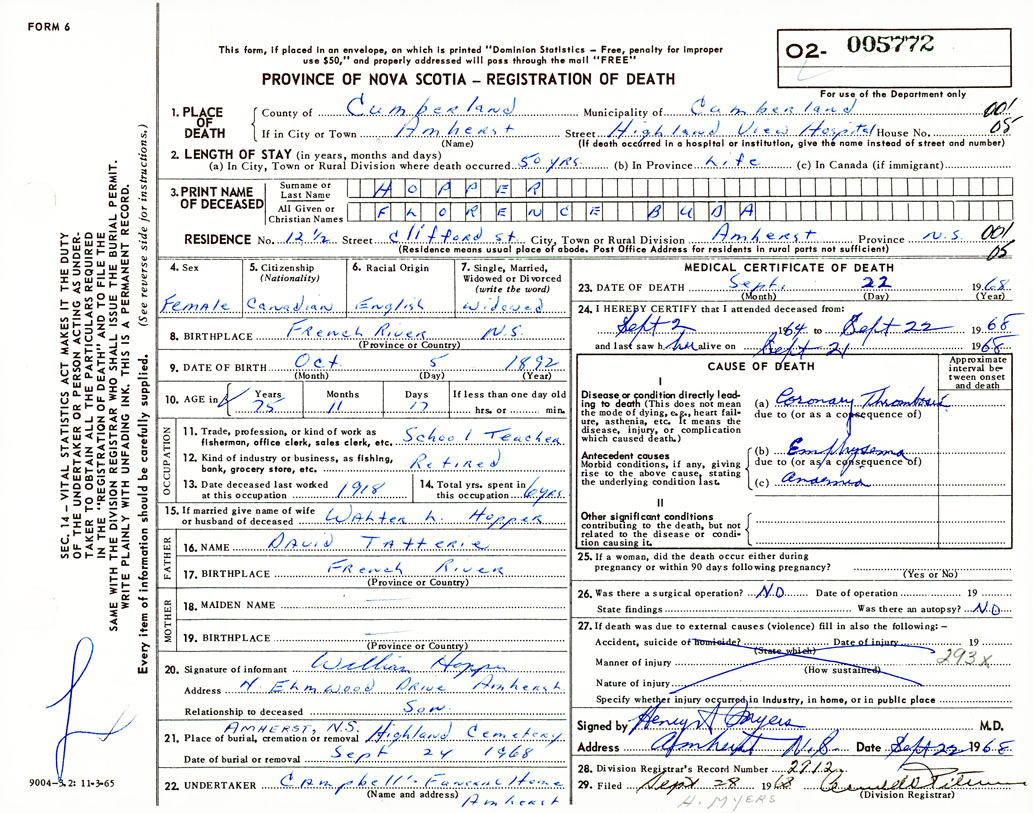 FORM 6
O2- 005772
This form, if placed in an envelope, on which is printed "Dominion Statistics – Free, penalty for improper
use $50," and properly addressed will pass through the mail "FREE"
PROVINCE OF NOVA SCOTIA – REGISTRATION OF DEATH
For use of the Department only
1. PLACE OF DEATH County of Cumberland Municipality of Cumberland 001
If in City or Town Amherst Street Highland View Hospital House No. 05
(Name) (If death occurred in a hospital or institution, give the name instead of street and number)
2. LENGTH OF STAY (in years, months and days)
(a) In City, Town or Rural Division where death occurred 50 yrs. (b) In Province Life (c) In Canada (if immigrant)
3. PRINT NAME OF DECEASED Surname or Last Name HOPPER
All Given or Christian Names FLORENCE BUDA
RESIDENCE No. 12 1/2 Street Clifford st City, Town or Rural Division Amherst Province N.S. 001
(Residence means usual place of abode. Post Office Address for residents in rural parts not sufficient) 05
4. Sex 5. Citizenship (Nationality) 6. Racial Origin 7. Single, Married, Widowed or Divorced (write the word)
Female Canadian English Widowed
8. BIRTHPLACE French River N.S.
(Province or Country)
9. DATE OF BIRTH Oct 5 1892
(Month) (Day) (Year)
10. AGE in Years Months Days If less than one day old
75 11 17 hrs. or min.
OCCUPATION
11. Trade, profession, or kind of work as fisherman, office clerk, sales clerk, etc. School Teacher
12. Kind of industry or business, as fishing, bank, grocery store, etc. Retired
13. Date deceased last worked at this occupation 1918 14. Total yrs. spent in this occupation 6 yrs.
15. If married give name of wife or husband of deceased Wahter L. Hopper
FATHER
16. NAME David Tatterie
17. BIRTHPLACE French River
(Province or Country)
MOTHER
18. MAIDEN NAME
19. BIRTHPLACE
(Province or Country)
20. Signature of informant William Hopper
Address 4 Ehmwood Drive Amherst
Relationship to deceased Son
AMHERST, N.S.
21. Place of burial, cremation or removal Highland Cemetery
Date of burial or removal Sept 24 1968
22. UNDERTAKER Campbell's Funeral Home
(Name and address) Amherst
MEDICAL CERTIFICATE OF DEATH
23. DATE OF DEATH Sept. 22 1968
(Month) (Day) (Year)
24. I HEREBY CERTIFY that I attended deceased from:
Sept 2 1964 to Sept 22 1968
and last saw her alive on Sept 21 1968
CAUSE OF DEATH
Approximate interval between onset and death
I
Disease or condition directly leading to death (This does not mean the mode of dying, e.g., heart failure, asthenia, etc. It means the disease, injury, or complication which caused death.)
(a) Coronary Thrombosis
due to (or as a consequence of)
Antecedent causes
Morbid conditions, if any, giving rise to the above cause, stating the underlying condition last.
(b) Emphysema
due to (or as a consequence of)
(c) Anaemia
II
Other significant conditions
contributing to the death, but not related to the disease or condition causing it.
25. If a woman, did the death occur either during
pregnancy or within 90 days following pregnancy?
(Yes or No)
26. Was there a surgical operation? NO Date of operation 19
State findings Was there an autopsy? NO
27. If death was due to external causes (violence) fill in also the following: –
Accident, suicide of homicide? Date of injury 19
(State which) 293X
Manner of injury
(How sustained)
Nature of injury
Specify whether injury occurred in Industry, in home, or in public place
Signed by M.D.
Address Amherst N.S. Date Sept 22 1968
28. Division Registrar's Record Number 2912
29. Filed Sept 28 1968
(Division Registrar)
H. MYERS
SEC. 14 – VITAL STATISTICS ACT MAKES IT THE DUTY
OF THE UNDERTAKER OR PERSON ACTING AS UNDER-
TAKER TO OBTAIN ALL THE PARTICULARS REQUIRED
IN THE "REGISTRATION OF DEATH" AND TO FILE THE
SAME WITH THE DIVISION REGISTRAR WHO SHALL ISSUE THE BURIAL PERMIT.
WRITE PLAINLY WITH UNFADING INK. THIS IS A PERMANENT RECORD.
Every item of information should be carefully supplied. (See reverse side for instructions.)
9004-5.2: 11-3-65